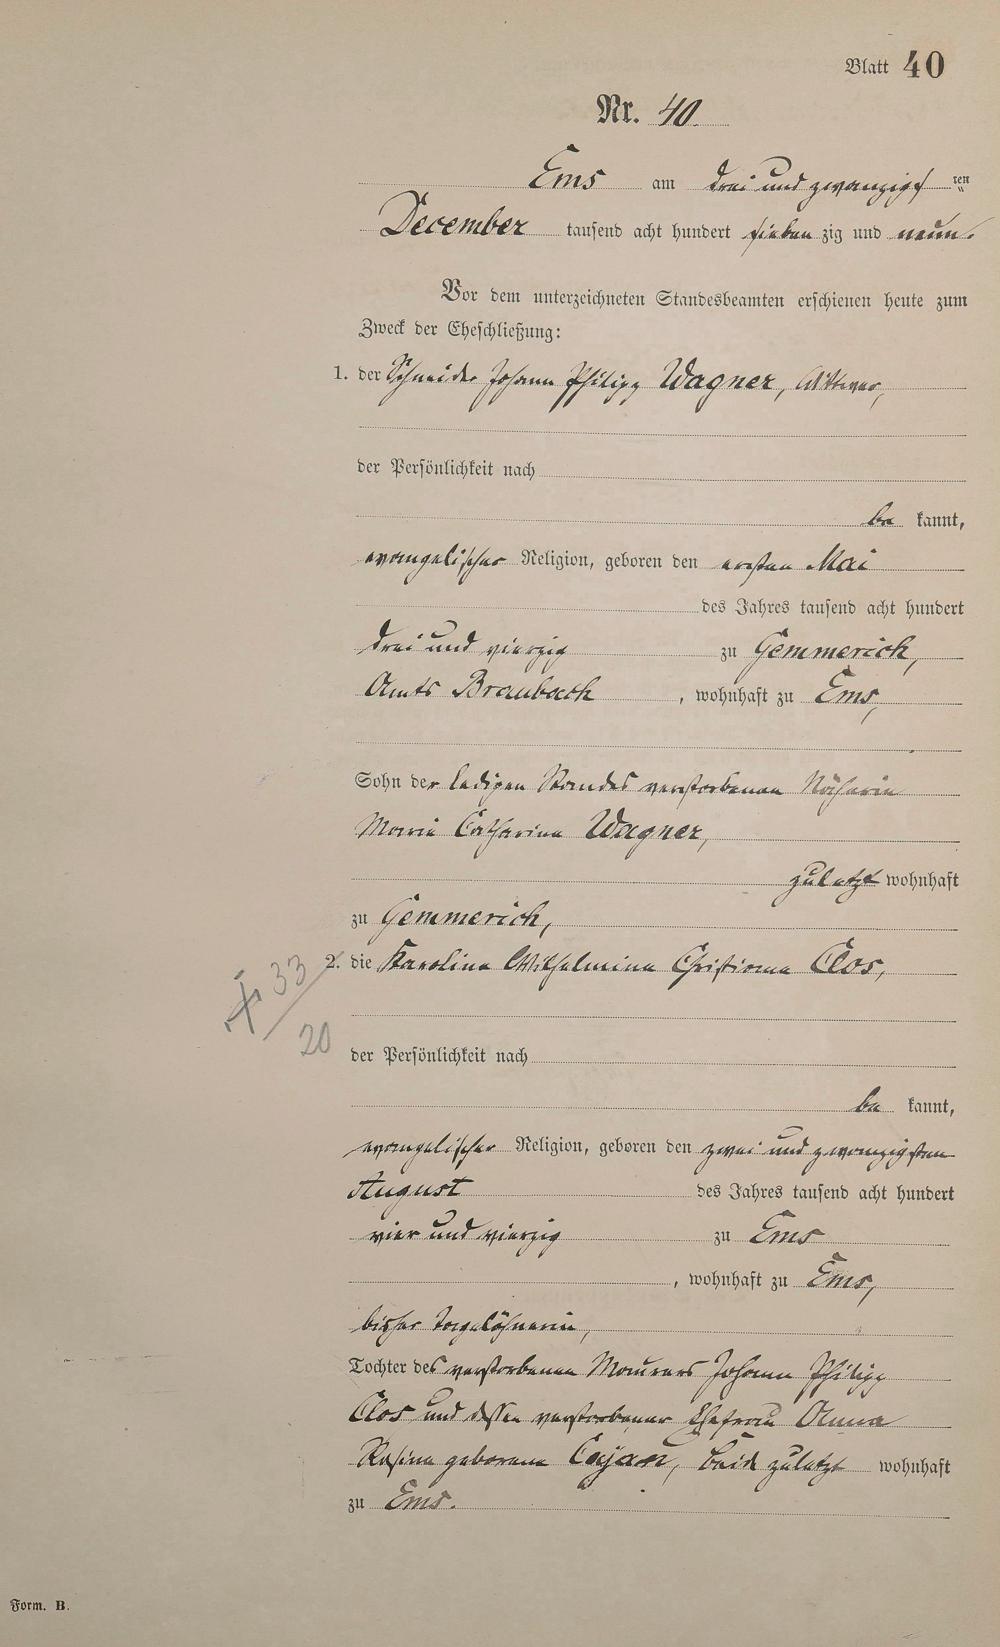 Blatt 40
Nr. 40.
Ems am drei und zwanzigst ten
December tausend acht hundert sieben zig und neun.
Vor dem unterzeichneten Standesbeamten erschienen heute zum
Zweck der Eheschließung:
1. der Schneider Johann Philipp Wagner, Wittwer,
der Persönlichkeit nach
be kannt,
evangelischer Religion, geboren den ersten Mai
des Jahres tausend acht hundert
drei und vierzig zu Gemmerich,
Amts Braubach , wohnhaft zu Ems,
Sohn der ledigen Standes verstorbenen Näherin
Maria Catharina Wagner,
zuletzt wohnhaft
zu Gemmerich,
2. die Karolina Wilhelmina Christiana Clos,
33
20
der Persönlichkeit nach
be kannt,
evangelischer Religion, geboren den zwei und zwanzigsten
August des Jahres tausend acht hundert
vier und vierzig zu Ems
, wohnhaft zu Ems,
bisher Tagelöhnerin,
Tochter des verstorbenen Maurers Johann Philipp
Clos und dessen verstorbener Ehefrau Anna
Rosina geborene, beide zuletzt wohnhaft
zu Ems.
Form. B.